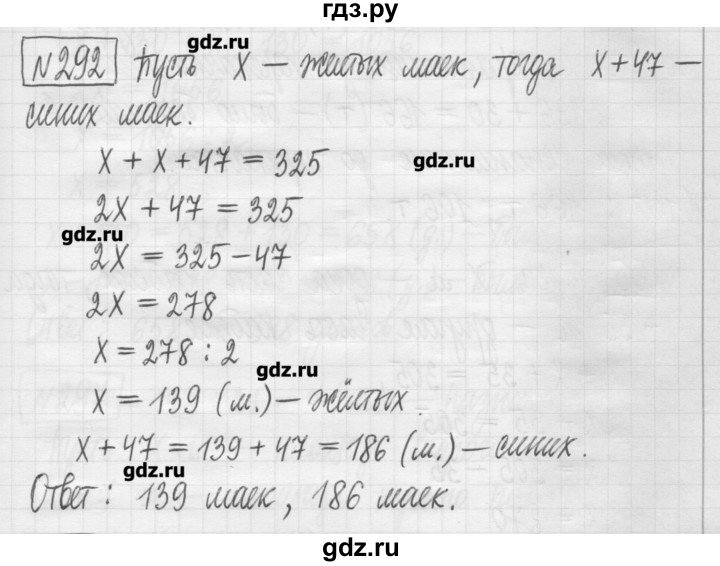 гдз.ру
gdz.ru
№292 Пусть х – жёлтых маек, тогда х+47 –
синих маек.
х + х + 47 = 325
gdz.ru
2х + 47 = 325
gdz.ru
2х = 325 – 47
2х = 278
х = 278 : 2
gdz.ru
х = 139 (м.) – жёлтых.
х + 47 = 139 + 47 = 186 (м.) – синих.
gdz.ru
Ответ: 139 маек, 186 маек.
gdz.ru